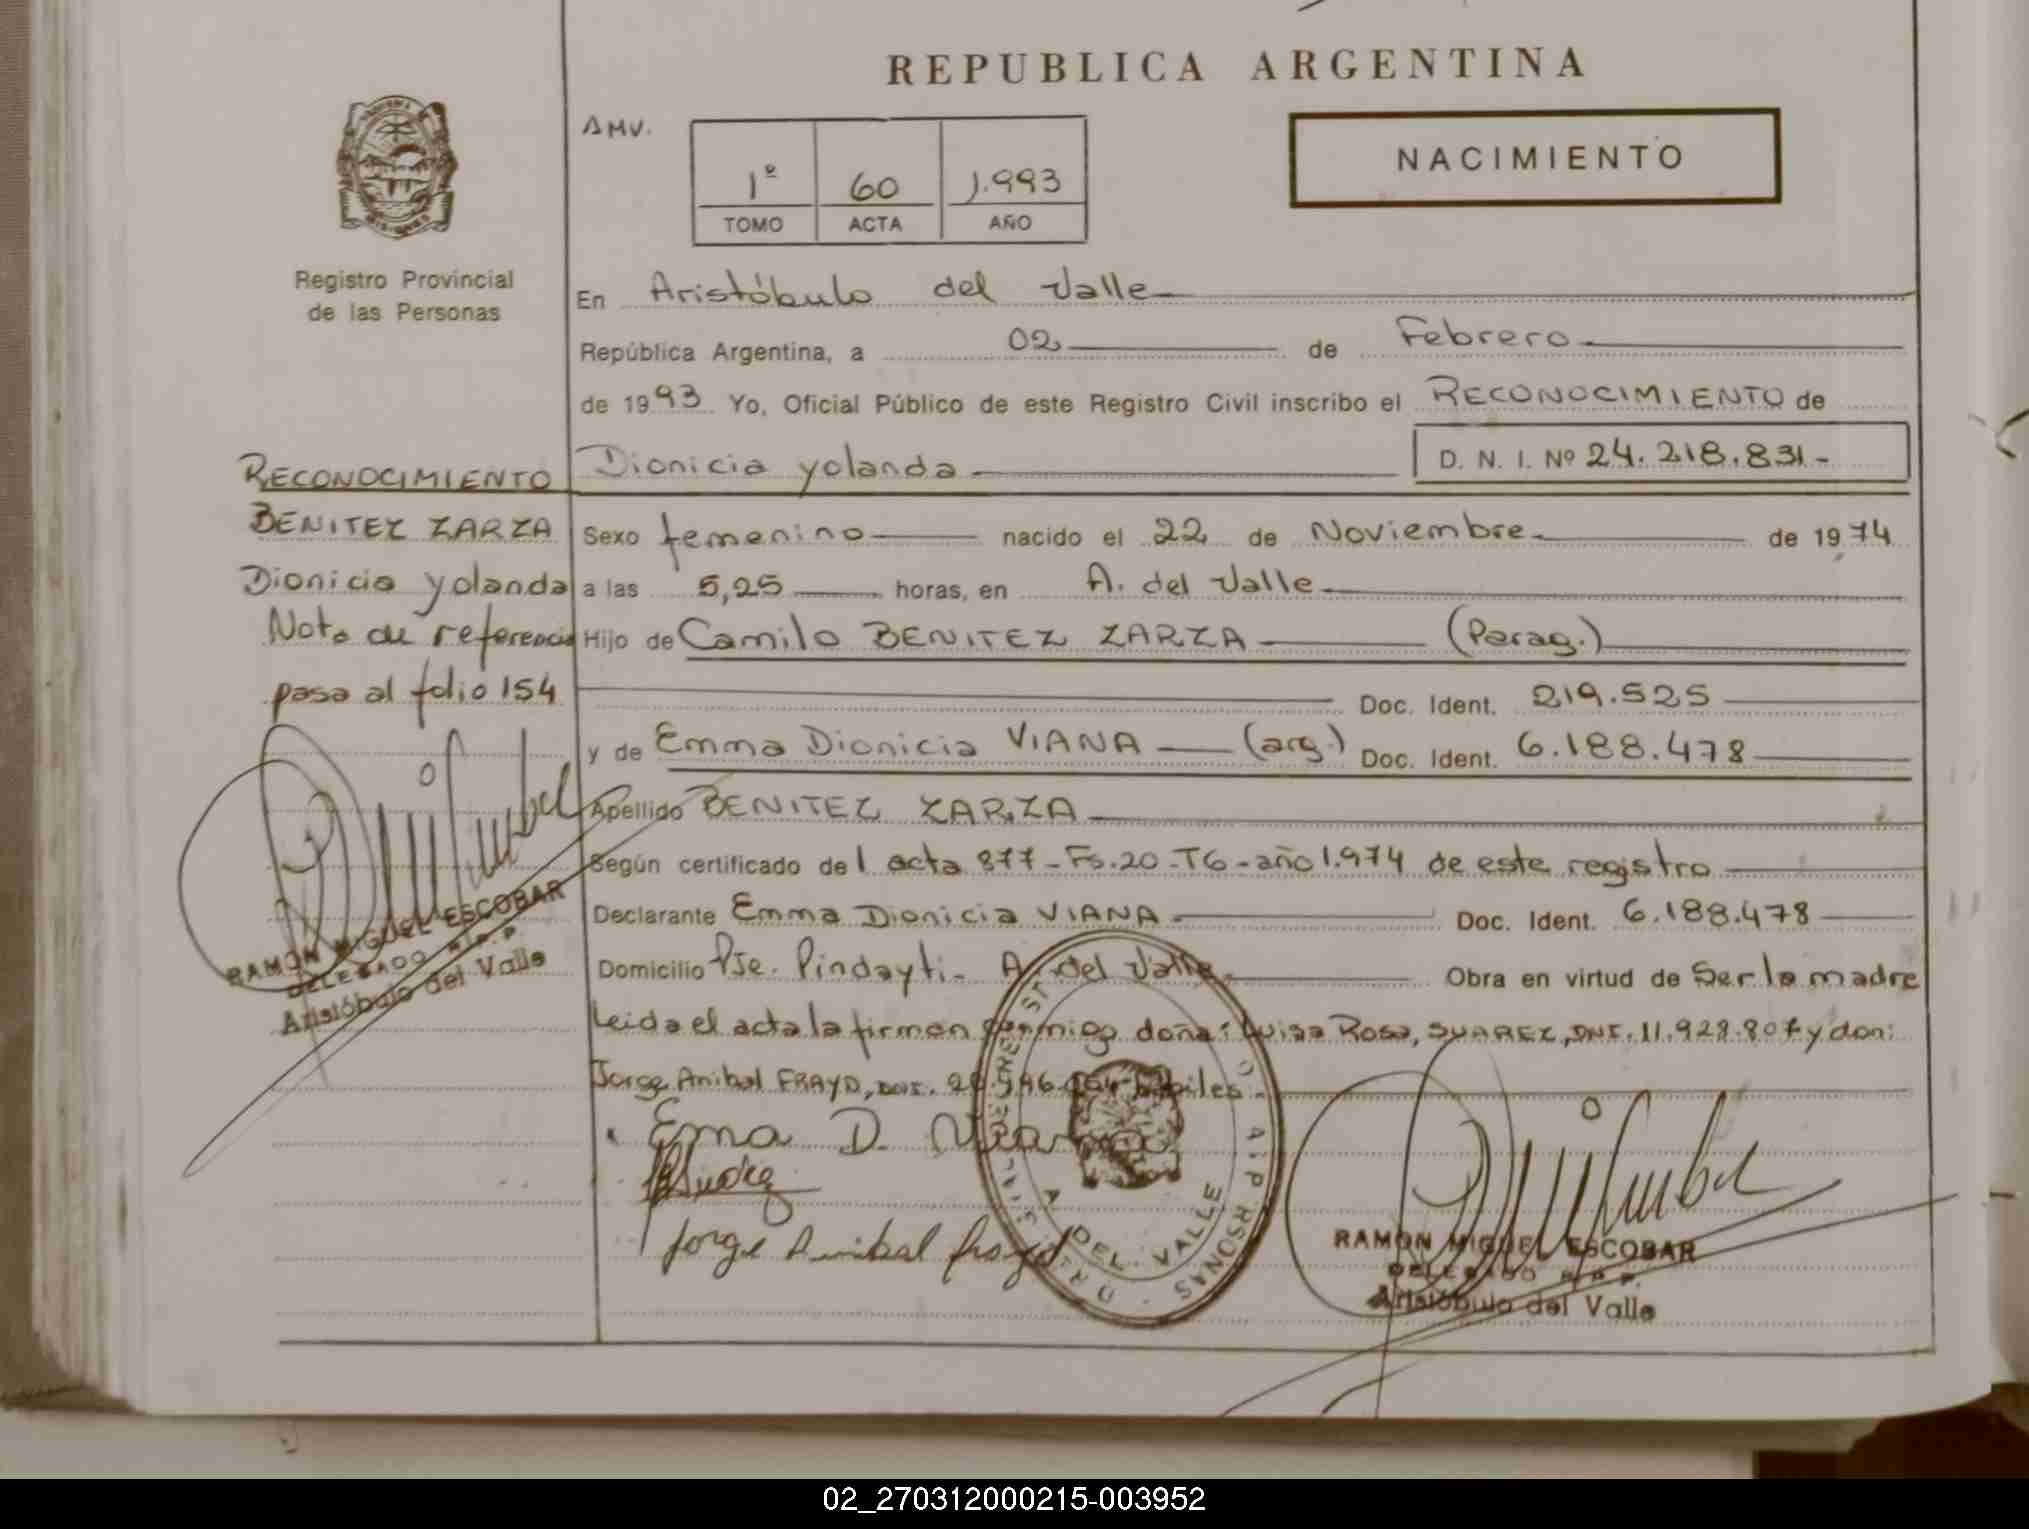 REPUBLICA ARGENTINA
AMV.
1º 60 1.993
TOMO ACTA AÑO
NACIMIENTO
Registro Provincial
de las Personas
En Aristóbulo del Valle
República Argentina, a 02 de Febrero
de 1993 Yo, Oficial Público de este Registro Civil inscribo el RECONOCIMIENTO de
Dionicia yolanda D. N. I. Nº 24.218.831-
RECONOCIMIENTO
BENITEZ ZARZA
Dionicia yolanda
Nota de referencia
pasa al folio 154
RAMON MIGUEL ESCOBAR
DELEGADO R.P.P.
Aristóbulo del Valle
Sexo femenino nacido el 22 de Noviembre de 1974
a las 5,25 horas, en A. del Valle
Hijo de Camilo BENITEZ ZARZA (Parag.)
Doc. Ident. 219.525
y de Emma Dionicia VIANA (arg.) Doc. Ident. 6.188.478
Apellido BENITEZ ZARZA
Según certificado del acta 877-Fs.20-T6-año 1.974 de este registro
Declarante Emma Dionicia VIANA Doc. Ident. 6.188.478
Domicilio Pje. Pindayti- A. del Valle Obra en virtud de Ser la madre
Leida el acta la firman conmigo doña: Luisa Rosa, SUAREZ, DNI. 11.928.807 y don:
Jorge Anibal FRAYD, DNI. hábiles
Ema D. Viana
Jorge Anibal Frayd
A. DEL VALLE
RAMON MIGUEL ESCOBAR
DELEGADO R.P.P.
Aristóbulo del Valle
02_270312000215-003952